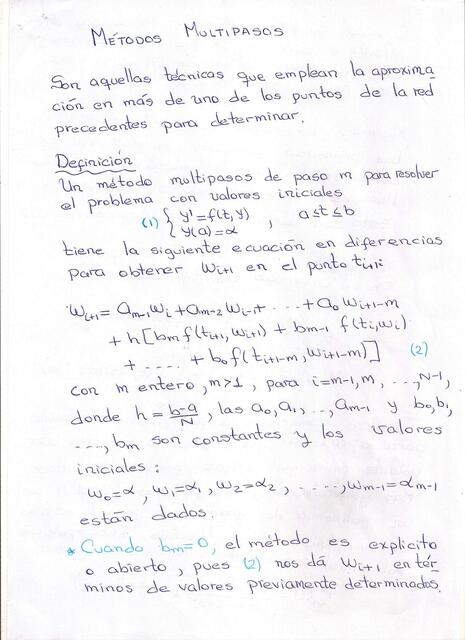 MÉTODOS MULTIPASOS
Son aquellas técnicas que emplean la aproxima
ción en más de uno de los puntos de la red
precedentes para determinar.
Definición
Un método multipasos de paso m para resolver
el problema con valores iniciales
(1) { y' = f(t, y) , a ≤ t ≤ b
y(a) = α
tiene la siguiente ecuación en diferencias
para obtener Wi+1 en el punto ti+1:
Wi+1 = am-1 Wi + am-2 Wi-1 + .... + a0 Wi+1-m
+ h[bm f(ti+1, Wi+1) + bm-1 f(ti, Wi)
+ .... + b0 f(ti+1-m, Wi+1-m)] (2)
con m entero, m>1, para i=m-1, m, ..., N-1,
donde h = b-a/N, las a0, a1, ..., am-1 y b0, b1,
...., bm son constantes y los valores
iniciales :
W0 = α, W1 = α1, W2 = α2, ....., Wm-1 = αm-1
están dados.
* Cuando bm=0, el método es explícito
o abierto, pues (2) nos dá Wi+1 en tér
minos de valores previamente determinados.